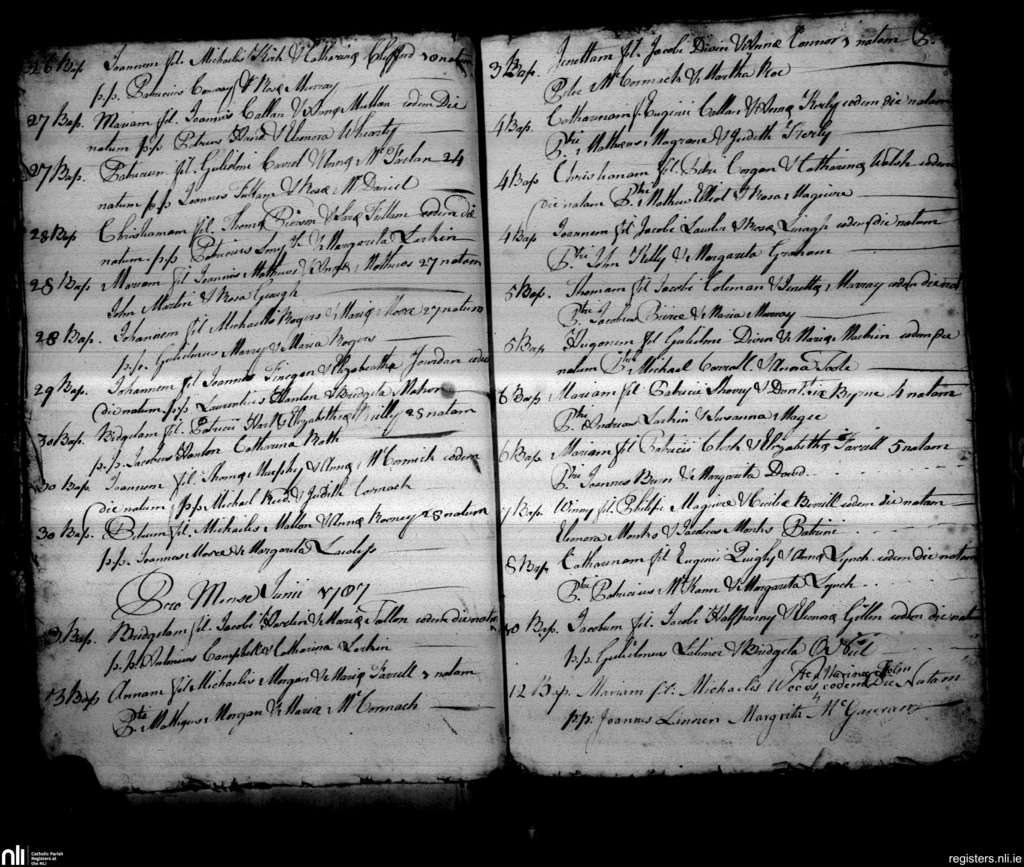 26 Bap Joannem fil. Michaelis Kirk & Catharinæ Clifford 30 natum
p.p. Patricius Conway & Rosa Murray
27 Bap. Mariam fil. Joannis Callan & Annæ Mallon eodem Die
natum p.p. Petrus & Elenora Whearty
27 Bap. Patricium fil. Gulielmi Carrol & Annæ Mc Parlan 24
natum p.p. Joannes & Rosa Mc Daniel
28 Bap Christianam fil. Thomæ & Fullam eodem die
natum. p.p. Patricius & Margarita Larkin
28 Bap. Mariam fil Joannis Mathews & Mathews 27 natam
John Martin & Rosa Geargh
28 Bap. Johannem fil Michaelis Rogers & Mariæ Moore 27 natum
p.p. Gulielmus & Maria Rogers
29 Bap. Johannem fil Joannis Finegan & Elizabethæ Jourdan eodem
Die natum p.p. Laurentius Hanlon & Bridgita Mahon
30 Bap. Bridgetam fil. Patricii & Elizabethæ Reilly 28 natam
p.p. Jacobus Hanlon Catharina Roth
30 Bap. Joannem fil. Thomæ Murphy & Annæ Mc Cormick eodem
Die natum p.p. Michael & Judith Cormach
30 Bap. Petrum fil. Michaelis Mallon & Annæ Rooney 28 natum
p.p. Joannes Moore & Margarita Lawless
Pro Mense Junii 1787
3 Bap. Bridgetam fil. Jacobi & Mariæ Fallon eodem die natam
p.p. Campbell & Catharina Larkin
3 Bap Annam fil Michaelis Morgan & Mariæ Farrell 3 natam
P.tri Matheus Morgan & Maria Mc Cormach
3 Bap. Jenettam fil. Jacobi Divin & Annæ Connor 3 natam
Mc Cormach & Martha Roe
4 Bap. Catharinam f. Eugenii Callan & Annæ Kerly eodem die natam
P.tri Matheus Magrane & Judith Kerly
4 Bap Christianam fil. Petri Corgan & Catharinæ Walsh eodem
die natam P.tri Matheus Elliot & Rosa Maguire
4 Bap Joannem fil Jacobi Lawler & Rosæ Linagh eodem die natam
P.tri John Kelly & Margarita Graham
5 Bap. Thomam fil Jacobi Coleman & Jenettæ Murray eodem die nat
P.tri Jacobus Pierce & Maria Murray
5 Bap Hugonem fil Gulielmi Divin & Mariæ Mackin eodem Die
natum P.tri Michael Carroll & Anna Toole
6 Bap Mariam fil Patricii Sharry & Byrne 4 natam
P.tri Andreas Larkin & Susanna Magee
6 Bap. Mariam fil Patricii Clark & Elizabethæ Farrell 5 natam
P.tri Joannes Burn & Margarita Dowd
7 Bap Winny fil. Philipi Maguire & Ceciliæ Berrill eodem die natam
Elenora Monks & Jacobus Monks Patrini
8 Bap Catharinam fil Eugenii Quigly & Annæ Lynch eodem die natam
P.tri Patricius Mc Kann & Margarita Lynch
10 Bap. Jacobum fil. Jacobi Halfpenny & Elenoræ Gollen eodem die natum
p.p. Gulielmus Latimer & Bridgita O Neil
12 Bap. Mariam fil. Michaelis Woods eodem Die Natam
p.p. Joannes Linnen Margrita Mc Gauran
nli Catholic Parish Registers at the NLI
registers.nli.ie